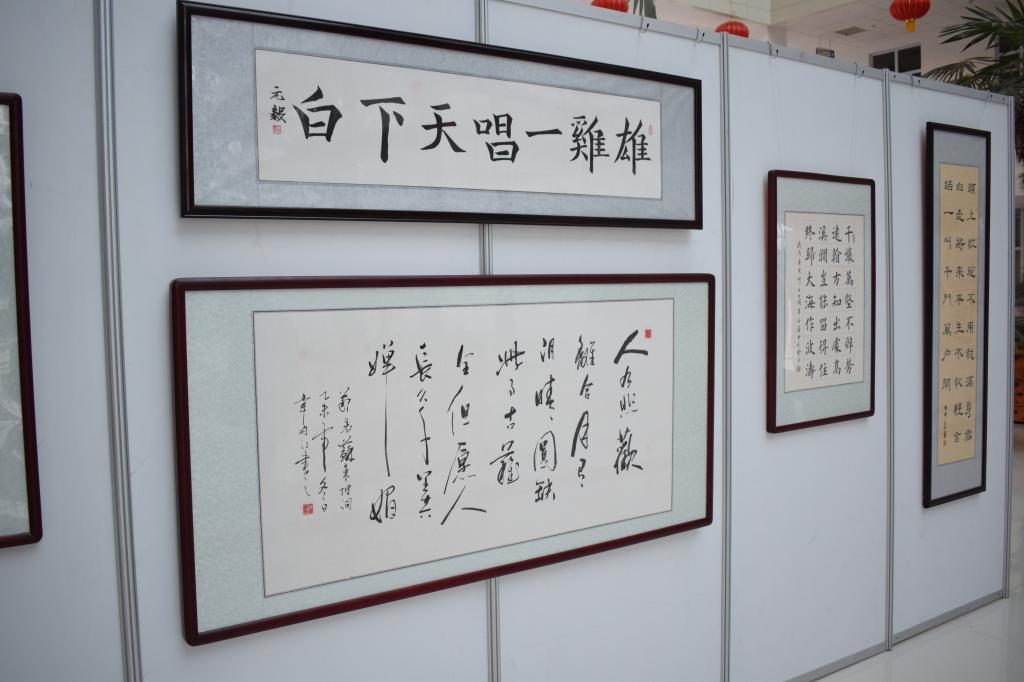 雄雞一唱天下白
元毅
人有悲歡
離合月有
陰晴圓缺
此事古難
全但愿人
長久千里共
嬋娟
蘇東坡詞
乙未年冬日
千巖萬壑不辭勞
遠看方知出處高
溪澗豈能留得住
終歸大海作波濤
頭上紅冠不用裁滿身雪
白走將來平生不敢輕言
語一叫千門萬戶開